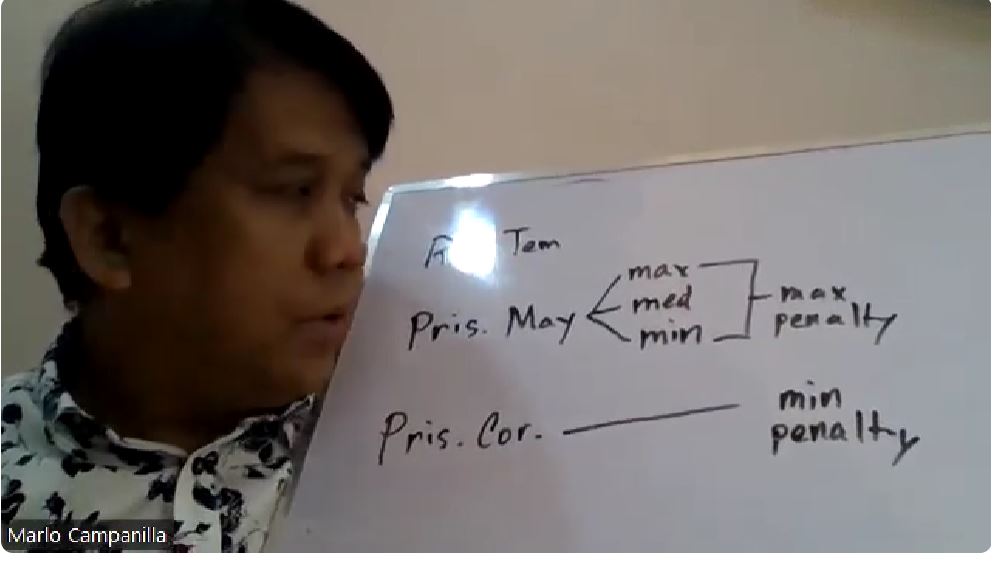 Tem
Pris. May
max
med
min
max
penalty
Pris. Cor.
min
penalty
Marlo Campanilla